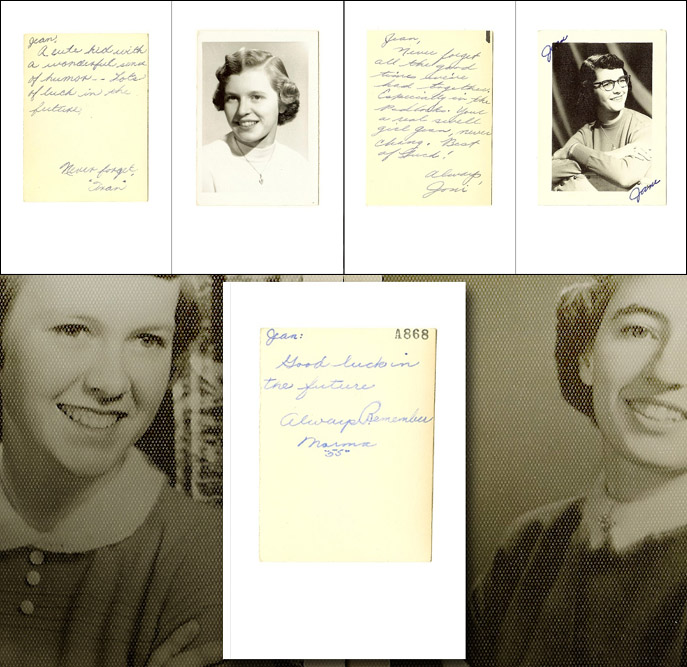 Jean!
A cute kid with
a wonderful send
of humor -- Lots
of luck in the
future
Never forget,
"Fran"
Jean,
Never forget
all the good
times we've
had together.
Especially in the
Your
a real swell
girl Jean, never
chang. Best
of Luck!
Always
Joni
Jean
Joanne
Jean:
A868
Good luck in
the future
Always Remember
Norma
"55"